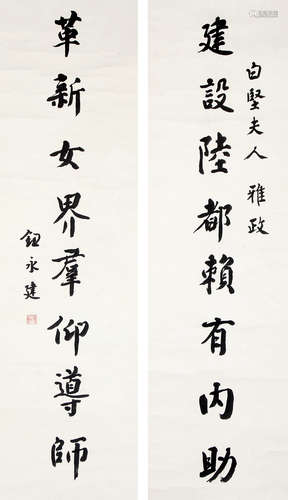 建設陸都賴有内助
白堅夫人 雅政
革新女界羣仰導師
鈕永建